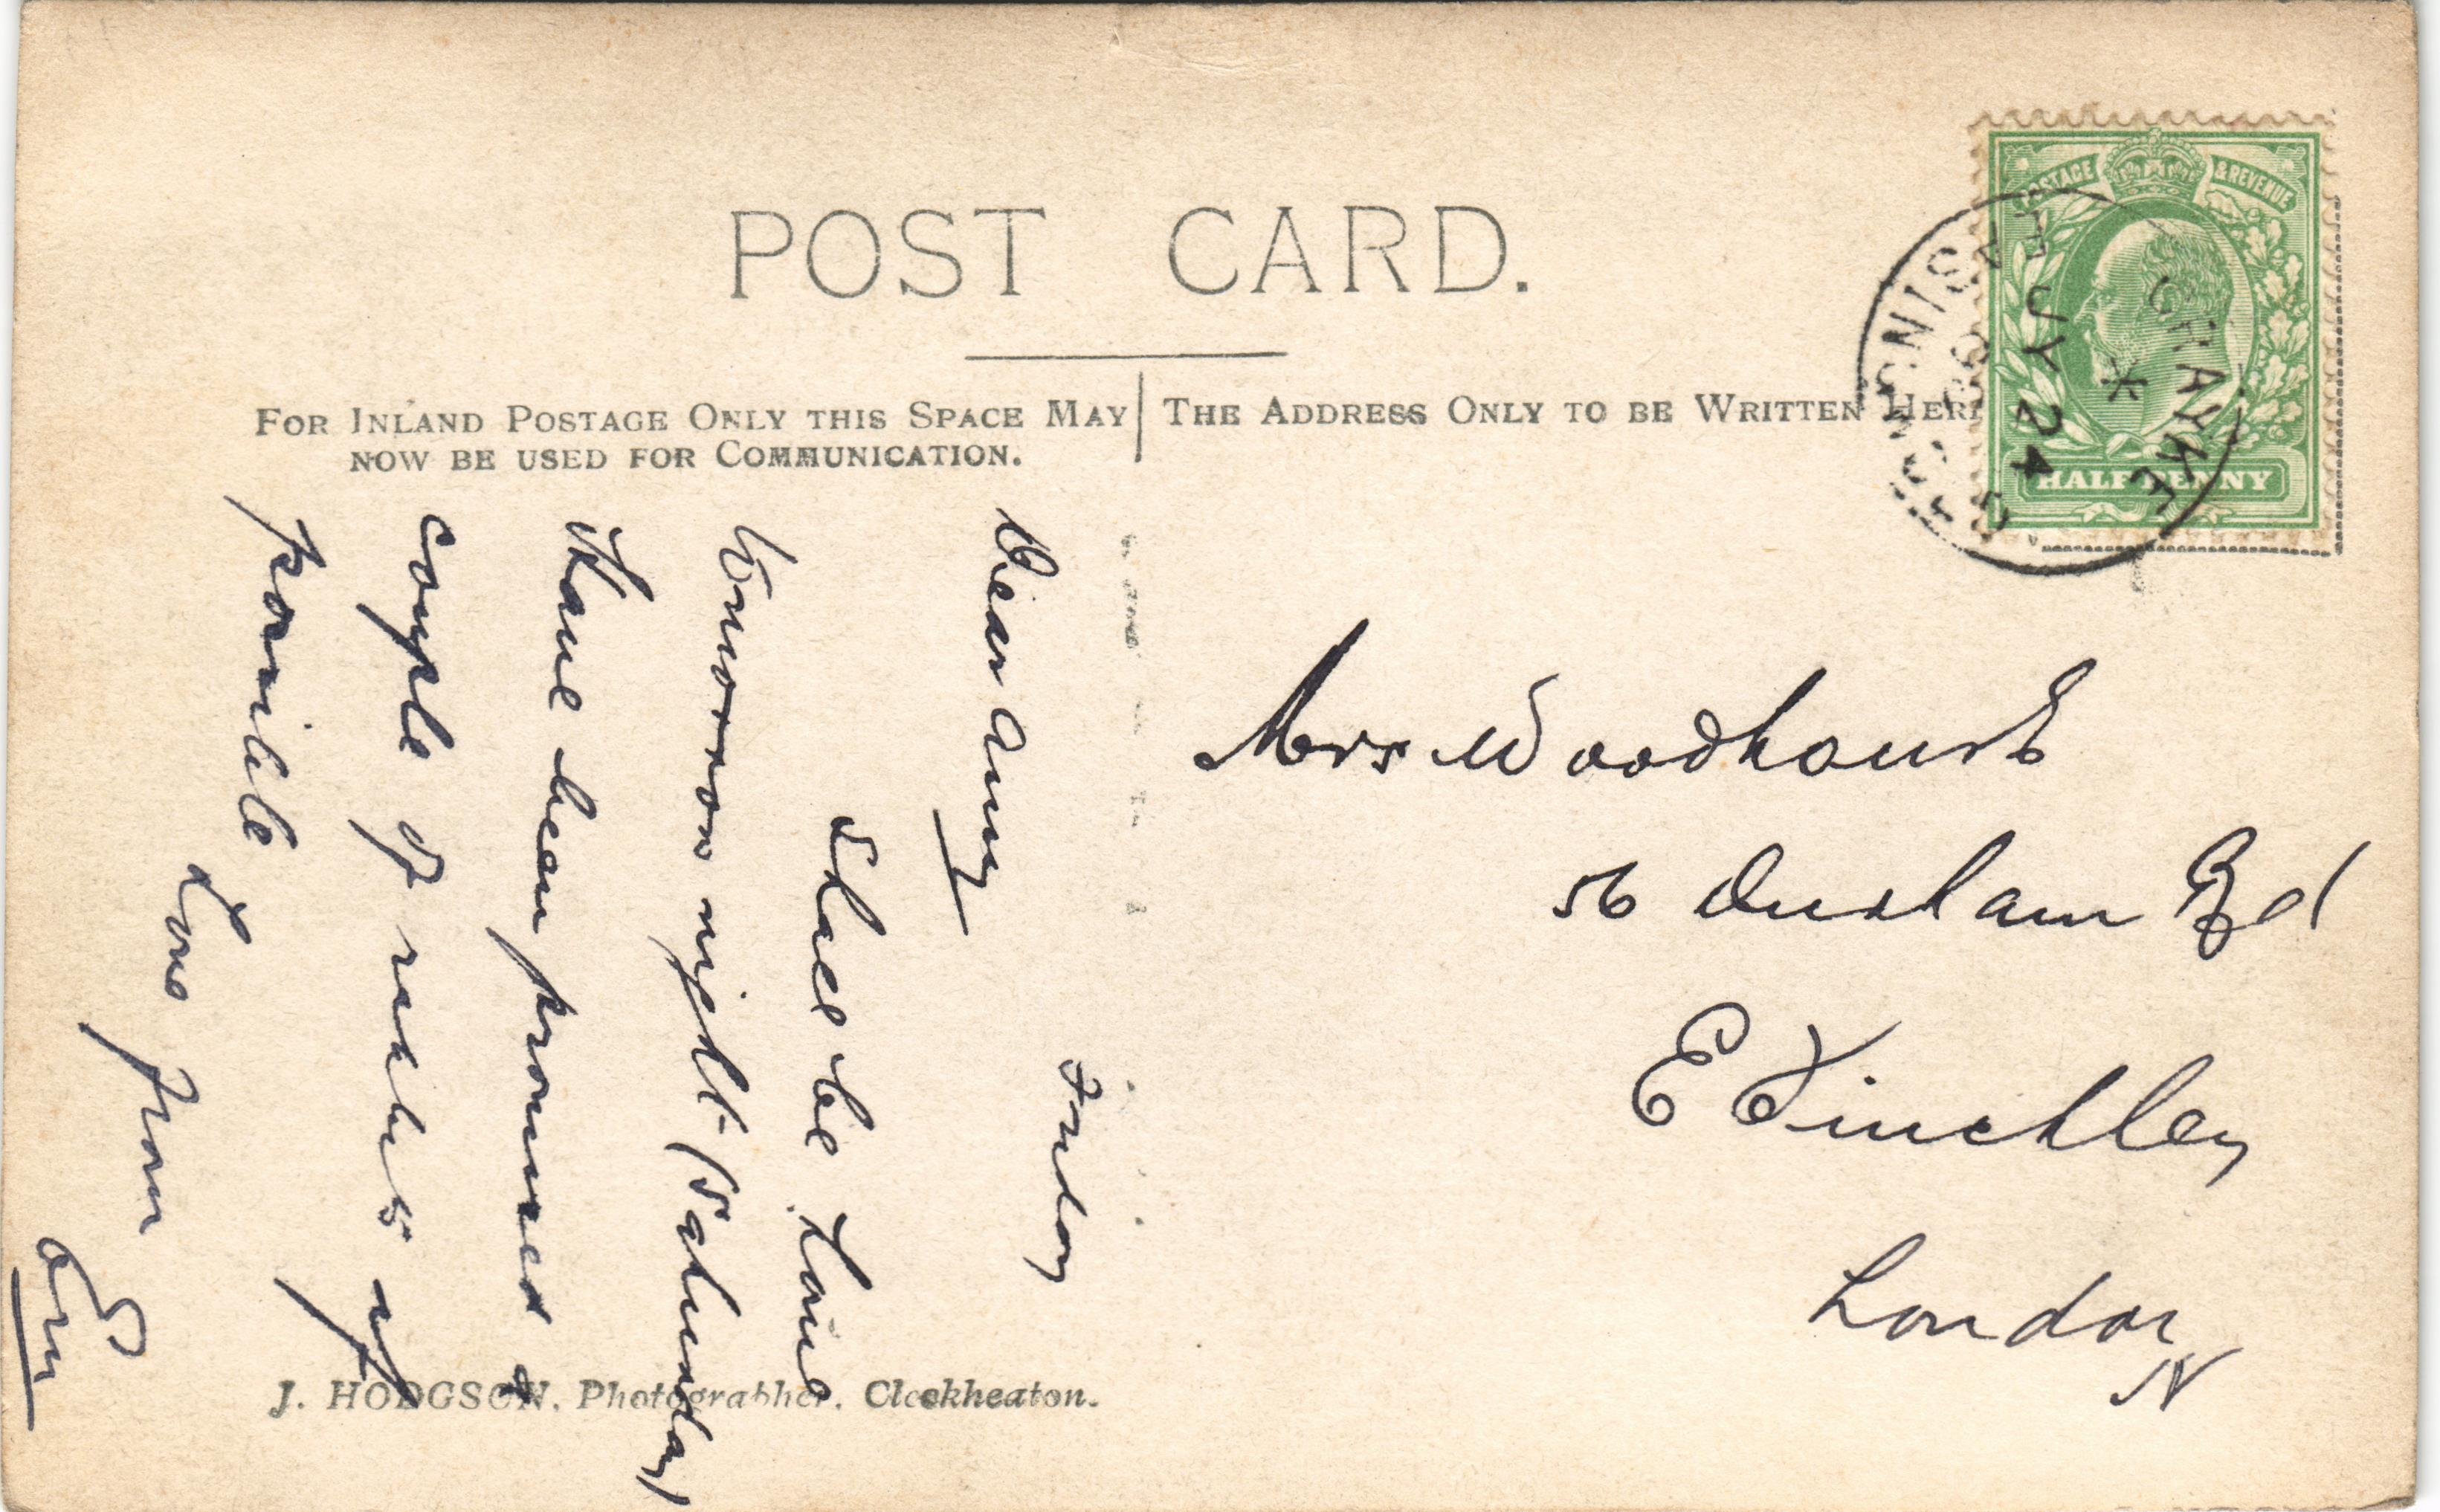 POST CARD.
FOR INLAND POSTAGE ONLY THIS SPACE MAY
NOW BE USED FOR COMMUNICATION.
THE ADDRESS ONLY TO BE WRITTEN HERE
POSTAGE & REVENUE
HALFPENNY
CRAYKE
JY 24
Friday
Dear Amy
Shall be home
tomorrow night (Saturday)
Have been promised a
couple of rabbits if
possible
Love from
Mrs Woodhouse
56 Durham Rd
E Finchley
London
N
J. HODGSON, Photographer, Cleckheaton.